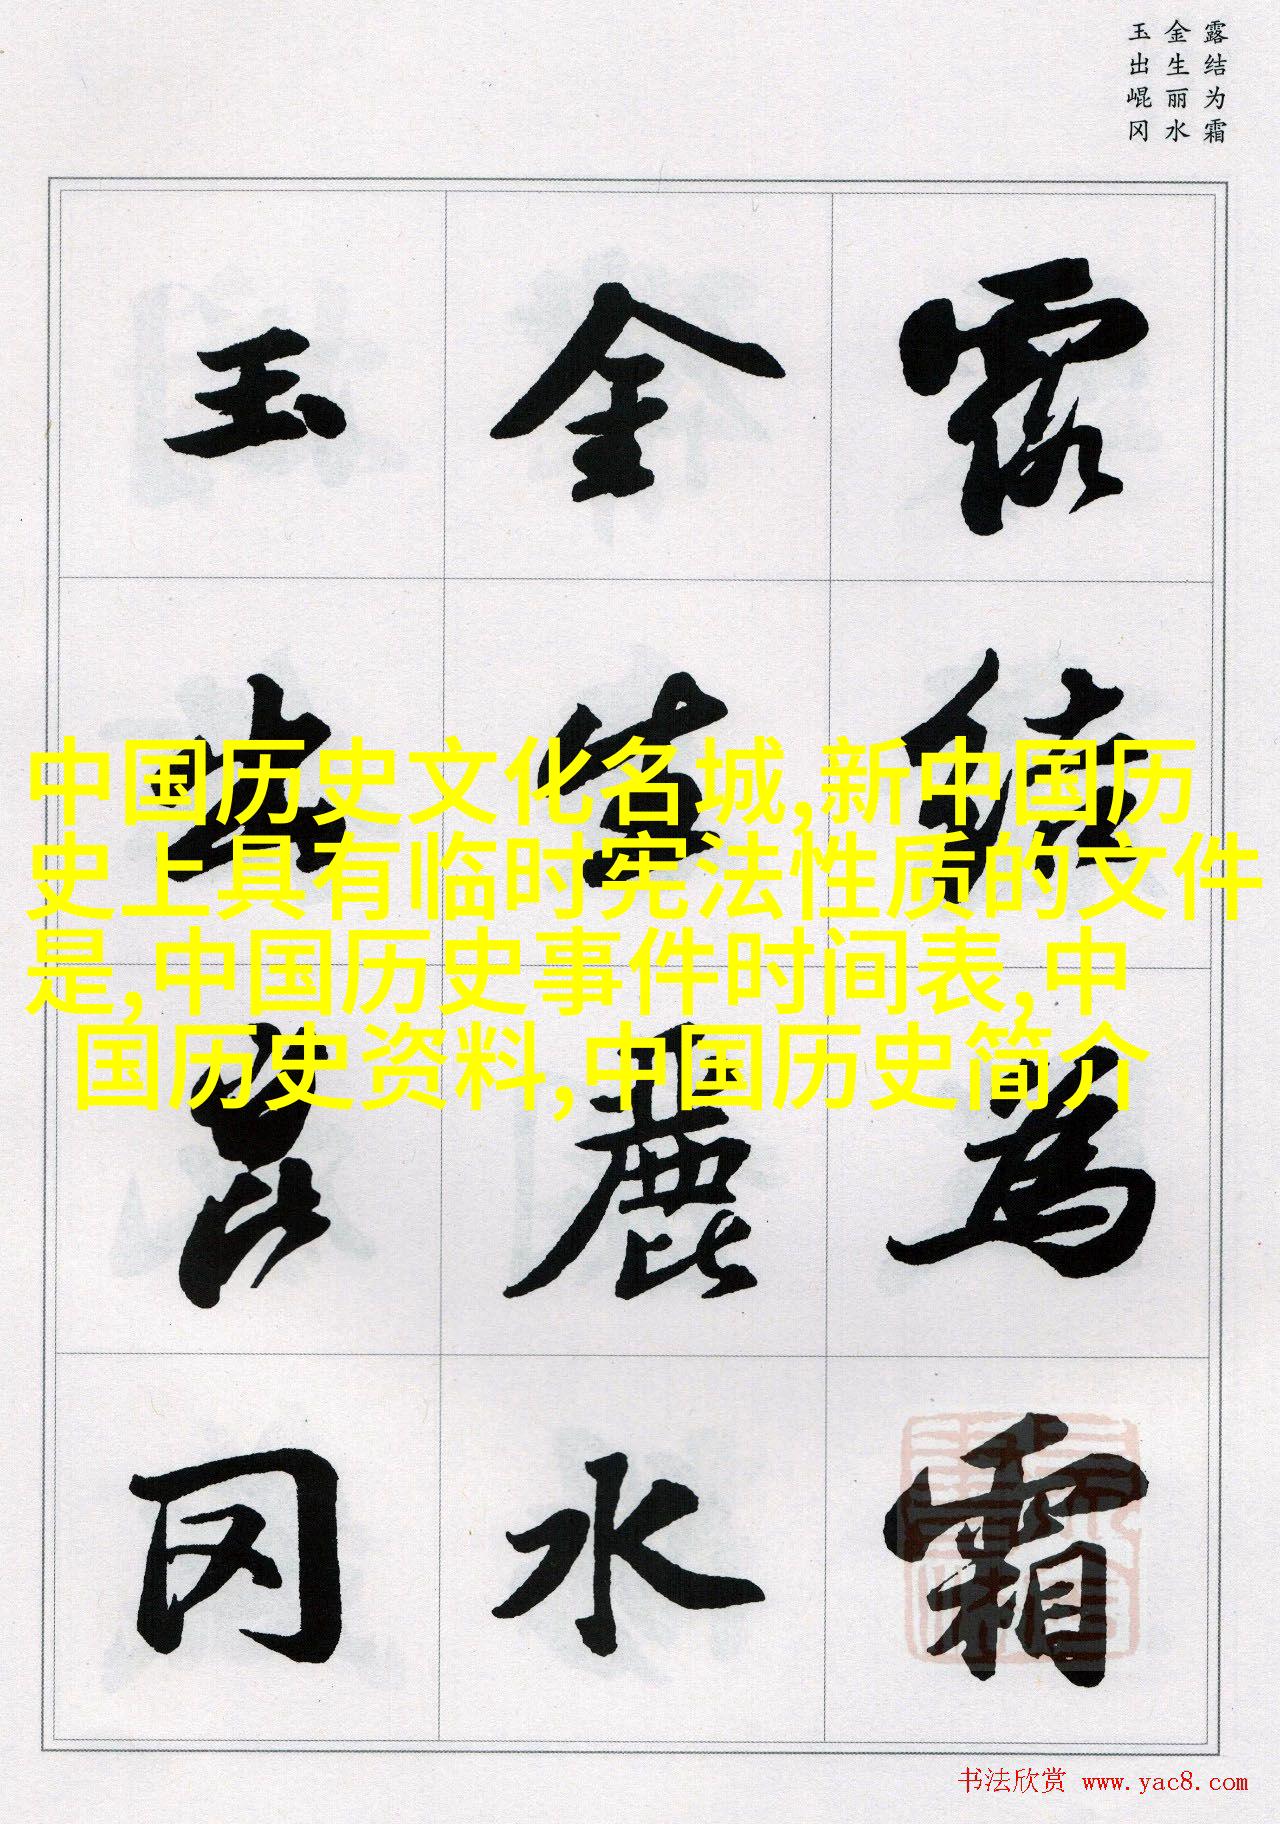 露结为霜
金生丽水
玉出崐冈
露結為霜
金生麗水
玉出崑冈
中国历史文化名城,新中国历
史上具有临时宪法性质的文件
是,中国历史事件时间表,中
国历史资料,中国历史简介
书法欣赏 www.yac8.com